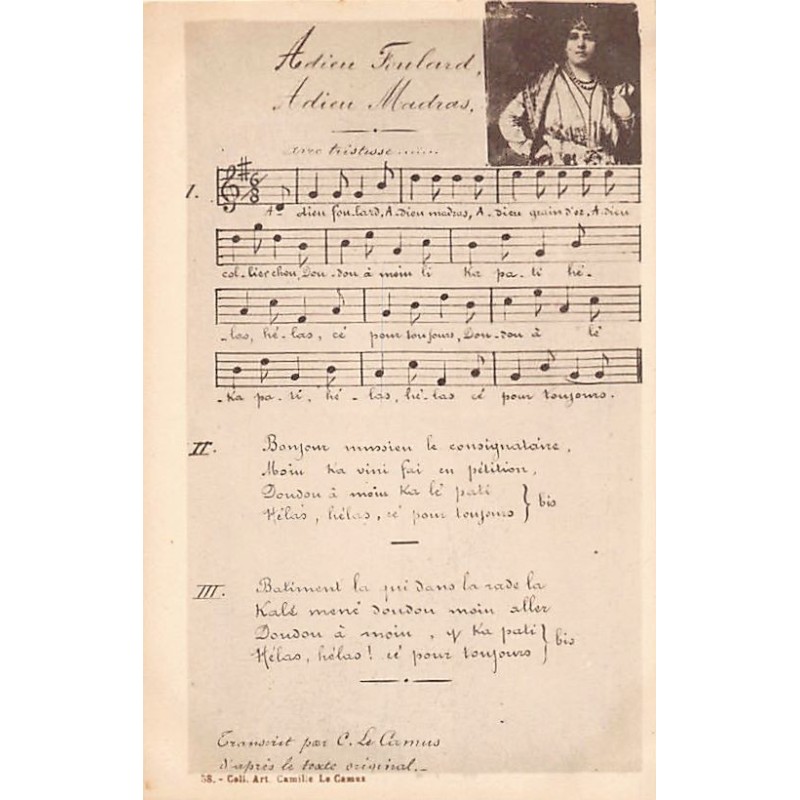 Adieu Foulard,
Adieu Madras,
avec tristesse......
I.
6
8
A- dieu fou-lard, A-dieu madras, A-dieu grain d'or, A-dieu
col-lier chou, Dou-dou à moin li Ka pa-ti hé-
-las, hé-las, cé pour toujours, Dou-dou à lé
-Ka pa-ti, hé-las, hé-las cé pour toujours.
II.
Bonjour mussieu le consignataire,
Moin Ka vini fai en pétition,
Doudou à moin Ka lé pati
Hélas, hélas, cé pour toujours } bis
III.
Batiment la qui dans la rade la
Kalé mené doudou moin aller
Doudou à moin, y Ka pati
Hélas, hélas! cé pour toujours } bis
Transcrit par C. Le Camus
d'après le texte original._
58. - Coll. Art. Camille Le Camus